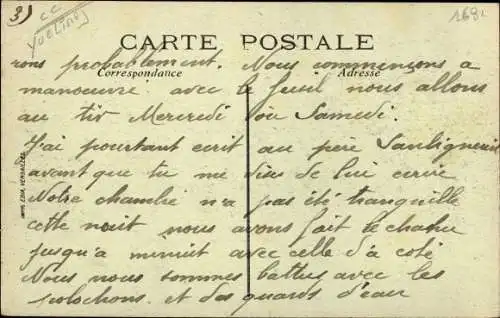 3)
CC
YVELINES
CARTE POSTALE
Correspondance
Adresse
rons probablement. Nous commençons a
manœuvré avec le fusil nous allons
au tir Mercredi ou Samedi.
J'ai pourtant ecrit au père
avant que tu me dises de lui ecrire
Notre chambre n'a pas été tranquille
cette nuit nous avons fait le chahu
jusqu'a minuit avec celle d'a coté
Nous nous sommes battus avec les
polochons et des quards d'eau
VERSAILLES